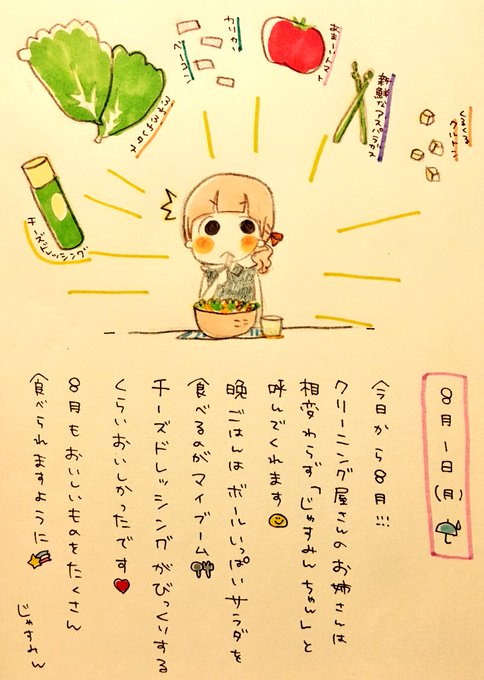 カリカリ
ベーコン
おおきいトマト
新鮮なアスパラガス
クルトン
チーズドレッシング
8月1日(月)
今日から8月!!!
クリーニング屋さんのお姉さんは
相変わらず「じゃすみんちゃん」と
呼んでくれます
晩ごはんはボールいっぱいサラダを
食べるのがマイブーム
チーズドレッシングがびっくりする
くらいおいしかったです
8月もおいしいものをたくさん
食べられますように
じゃすみん